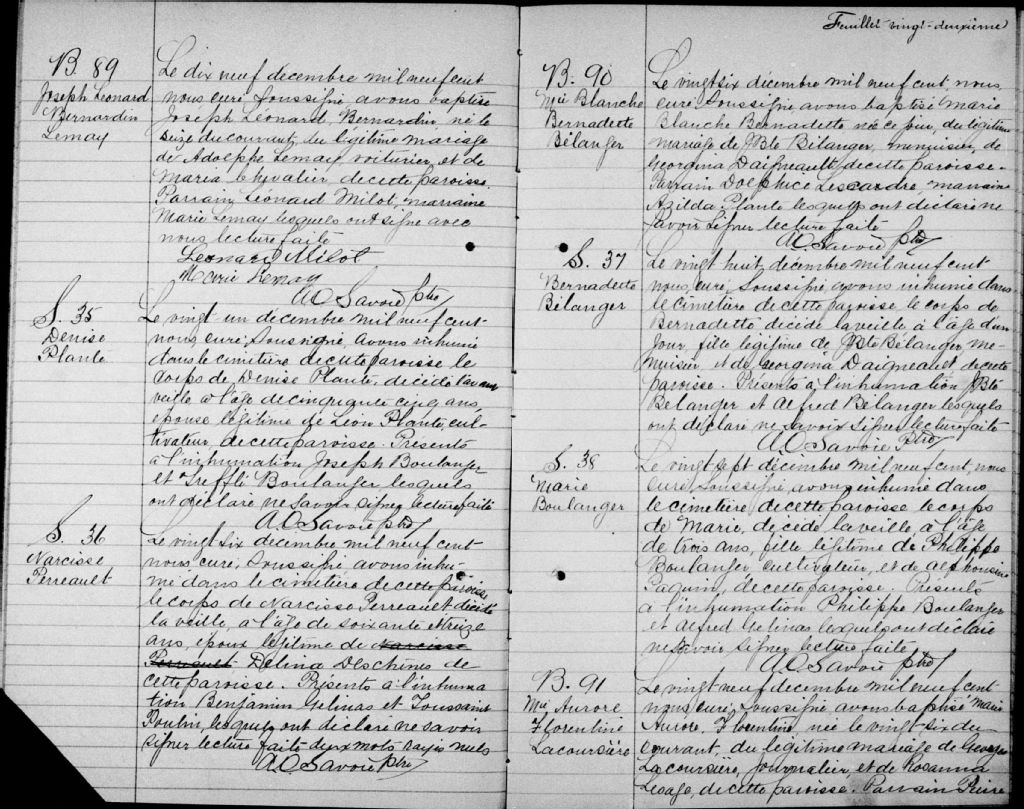 B. 89
Joseph Leonard
Bernardin
Lemay
Le dix neuf decembre mil neuf cent
nous curé soussigné avons baptisé
Joseph Leonard, Bernardin, né le
seize du courant, du légitime mariage
de Adolphe Lemay, voiturier, et de
Maria Chevalier, de cette paroisse.
Parrain Léonard Milot, marraine
Marie Lemay lesquels ont signé avec
nous lecture faite
Leonard Milot
Marie Lemay
A.O. Savoie ptre
S. 35
Denise
Plante
Le vingt un decembre mil neuf cent
nous curé, soussigné, avons inhumé
dans le cimetière de cette paroisse le
corps de Denise Plante, décédé
veille à l'age de cinquante cinq ans,
epouse légitime de Léon Plante, cul-
tivateur, de cette paroisse. Présents
à l'inhumation Joseph Boulanger
et Trefflé Boulanger lesquels
ont déclaré ne savoir signer lecture faite
A.O. Savoie ptre
S. 36
Narcisse
Perreault
Le vingt six decembre mil neuf cent
nous curé, soussigné avons inhu-
mé dans le cimetière de cette paroisse,
le corps de Narcisse Perreault décédé
la veille, à l'age de soixante et treize
ans, epoux légitime de Narcisse
Perreault Delina Deschênes de
cette paroisse. Présents à l'inhuma-
tion Benjamin Gelinas et Toussaint
Poulin, lesquels ont déclaré ne savoir
signer lecture faite deux mots rayés nuls
A.O. Savoie ptre
Feuillet vingt-deuxième
B. 90
Mie Blanche
Bernadette
Bélanger
Le vingt six décembre mil neuf cent, nous,
curé, soussigné, avons baptisé Marie
Blanche Bernadette née ce jour, du légitime
mariage de JBte Bélanger, menuisier, de
Georgina Daigneault de cette paroisse.
Parrain Dolphice Lescandre marraine
Azilda Plante lesquels ont déclaré ne
savoir signer lecture faite
A.O. Savoie ptre
S. 37
Bernadette
Bélanger
Le vingt huit décembre mil neuf cent
nous, curé, soussigné, avons inhumé dans
le cimetière de cette paroisse le corps de
Bernadette décédé la veille à l'âge d'un
jour, fille légitime de JBte Bélanger, me-
nuisier, et de Georgina Daigneault de cette
paroisse. Présents à l'inhumation JBte
Bélanger et Alfred Bélanger lesquels
ont déclaré ne savoir signer lecture faite
A.O. Savoie Ptre
S. 38
Marie
Boulanger
Le vingt sept décembre mil neuf cent, nous
curé, soussigné, avons inhumé dans
le cimetière de cette paroisse le corps
de Marie, décédé la veille, à l'âge
de trois ans, fille légitime de Philippe
Boulanger, cultivateur, et de Alphonsine
Paquin, de cette paroisse. Présents
à l'inhumation Philippe Boulanger
et Alfred Gelinas lesquels ont déclaré
ne savoir signer lecture faite
A.O. Savoie ptre
B. 91
Mie Aurore
Florentine
Lacoursière
Le vingt neuf decembre mil neuf cent
nous curé, soussigné avons baptisé Marie
Aurore, Florentine, née le vingt six du
courant, du légitime mariage de Georges
Lacoursière, journalier, et de Rosanna
Lesage, de cette paroisse. Parrain Pierre